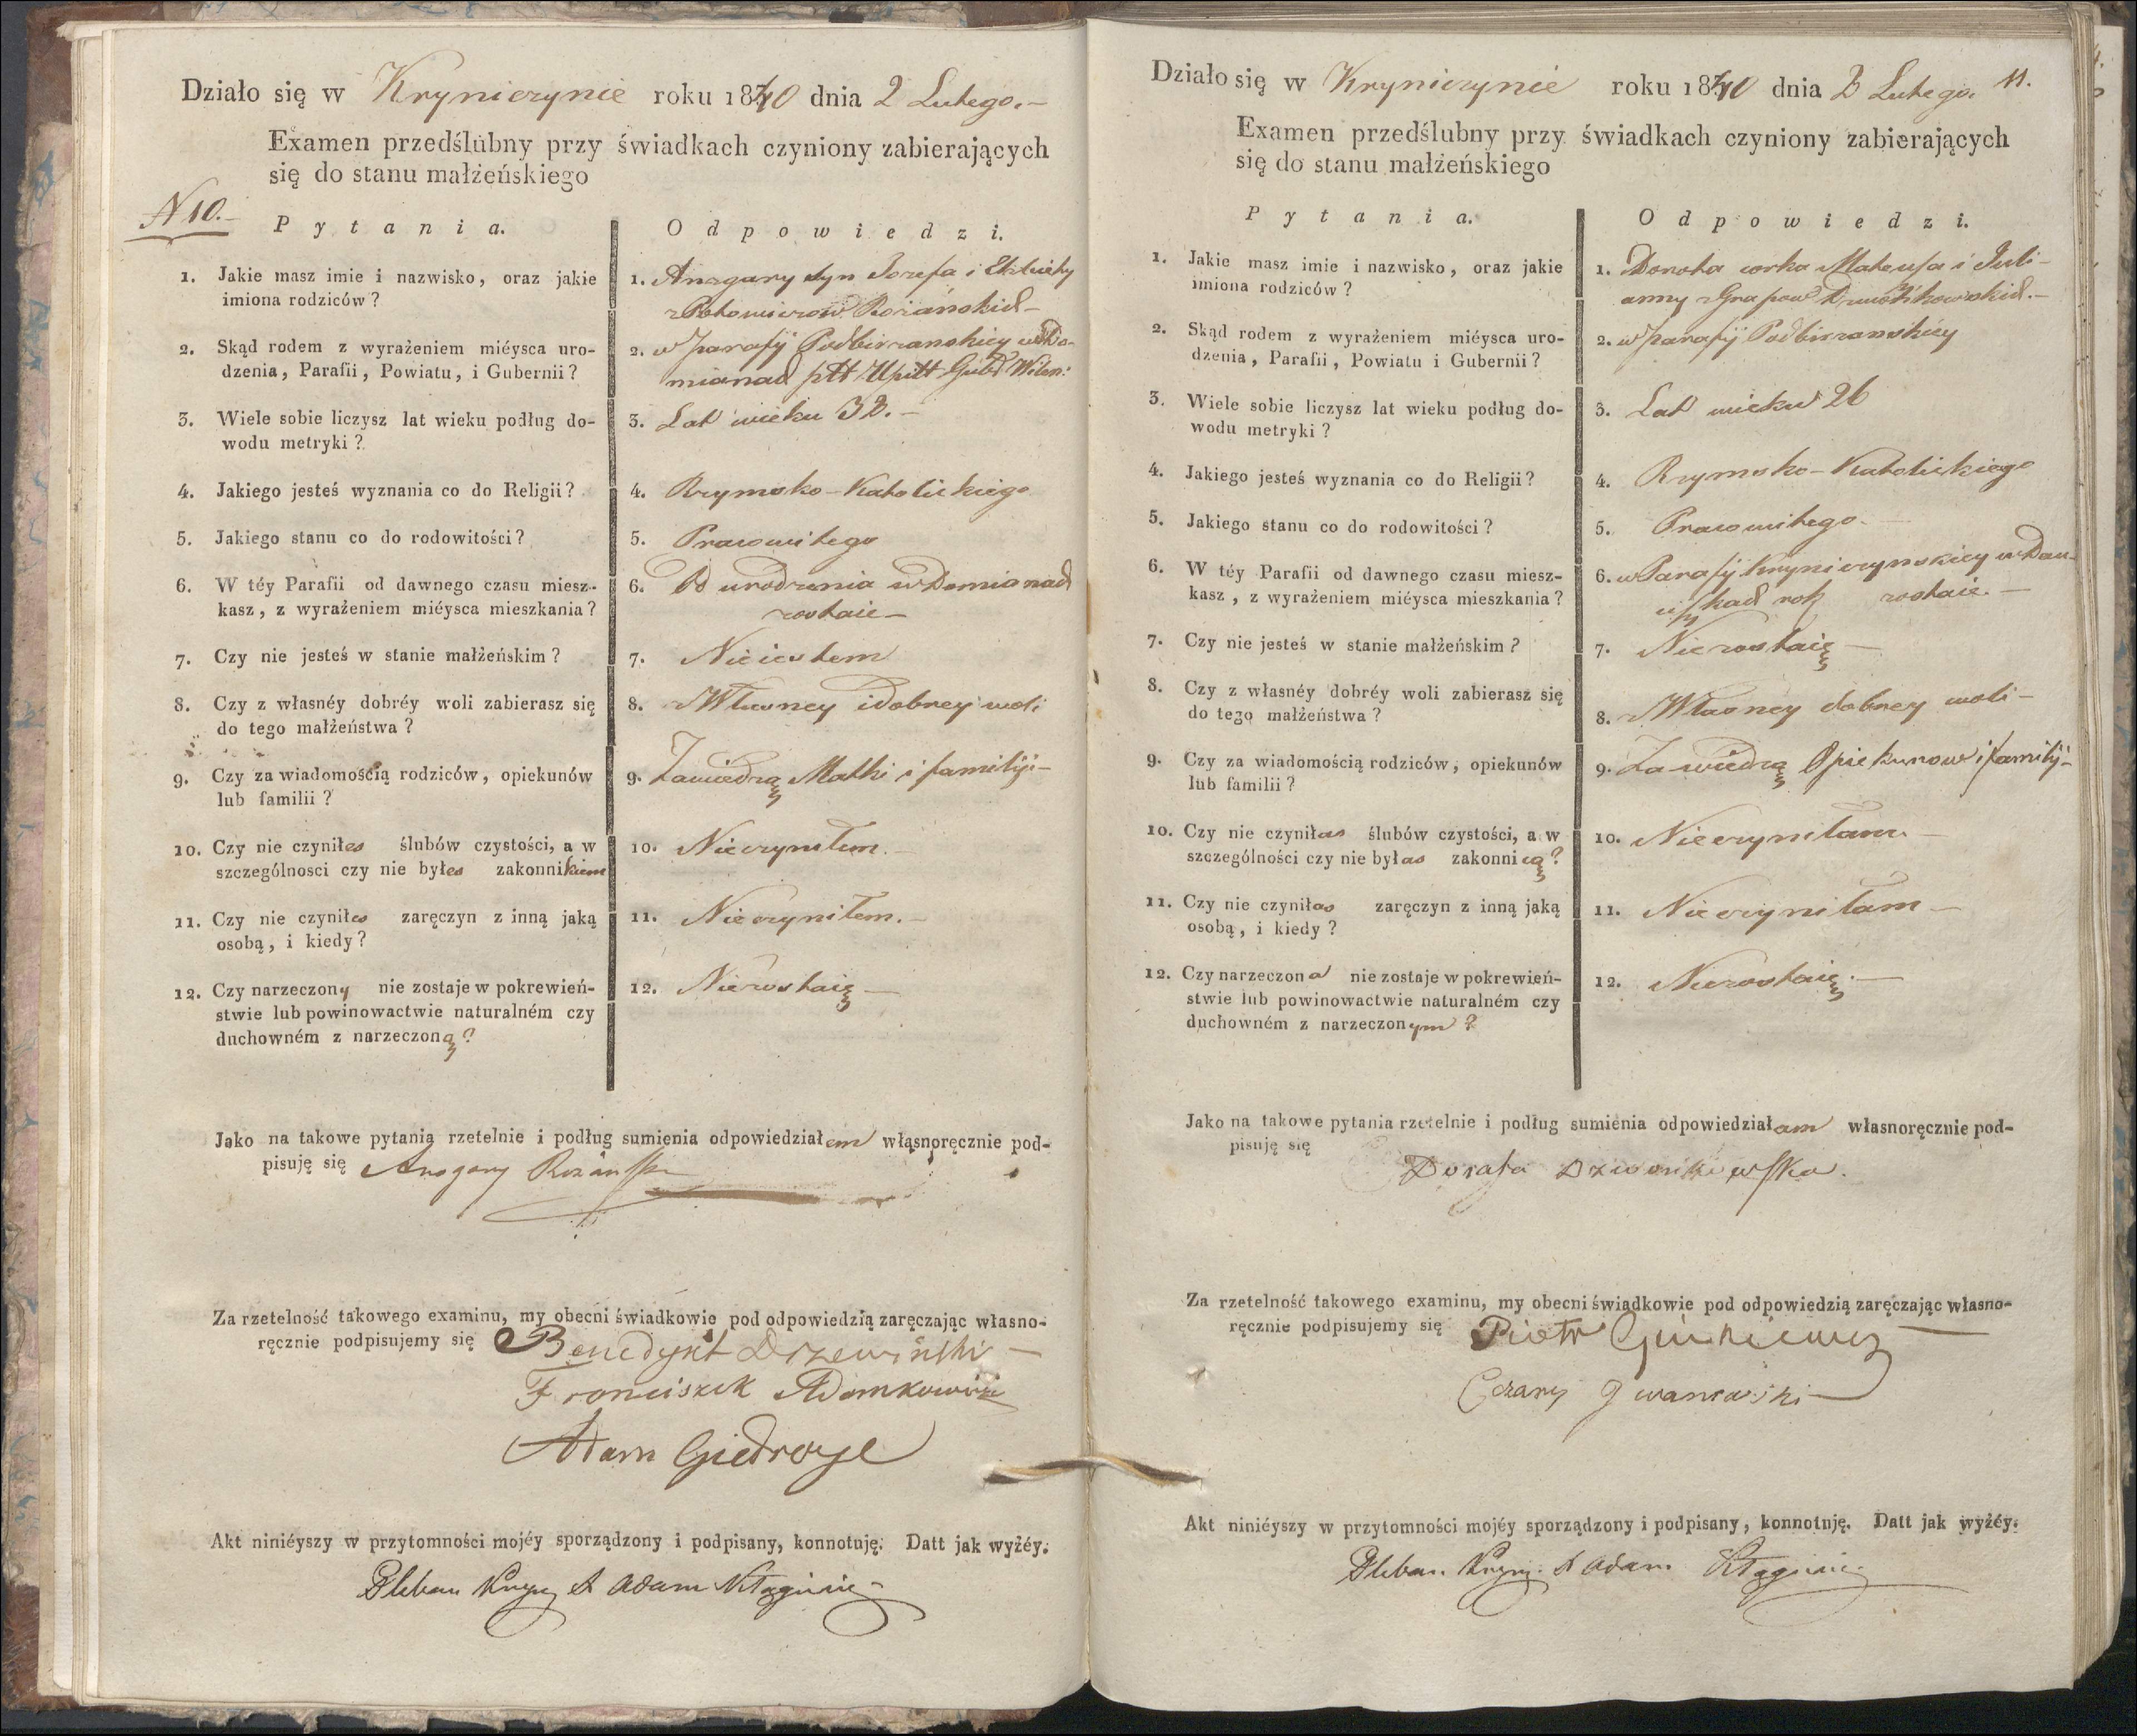 Działo się w Kryniczynie roku 1840 dnia 2 Lutego.-
Examen przedślubny przy świadkach czyniony zabierających
się do stanu małżeńskiego
N 10.-
Pytania.
Odpowiedzi.
1. Jakie masz imie i nazwisko, oraz jakie
imiona rodziców?
1. Ansgary syn Jozefa i Elzbiety
Rozańskich-
2. Skąd rodem z wyrażeniem miéysca uro-
dzenia, Parafii, Powiatu, i Gubernii?
2. w parafij Podbirzanskiey w Do-
mianach ptt Upitt Gub Wilen:
3. Wiele sobie liczysz lat wieku podług do-
wodu metryki?
3. Lat wieku 32.-
4. Jakiego jesteś wyznania co do Religii?
4. Rzymsko-Katolickiego
5. Jakiego stanu co do rodowitości?
5. Pracowitego
6. W téy Parafii od dawnego czasu miesz-
kasz, z wyrażeniem miéysca mieszkania?
6. Od urodzenia w Domianach
zostaie-
7. Czy nie jesteś w stanie małżeńskim?
7. Nie iestem
8. Czy z własnéy dobréy woli zabierasz się
do tego małżeństwa?
8. z Własney i dobrey woli
9. Czy za wiadomością rodziców, opiekunów
lub familii?
9. Za wiedzą Matki i familiji-
10. Czy nie czyniłes ślubów czystości, a w
szczególnosci czy nie byłes zakonnikiem
10. Nie czyniłem.-
11. Czy nie czyniłes zaręczyn z inną jaką
osobą, i kiedy?
11. Nie czyniłem.-
12. Czy narzeczony nie zostaje w pokrewień-
stwie lub powinowactwie naturalném czy
duchowném z narzeczoną?
12. Nie zostaię-
Jako na takowe pytania rzetelnie i podług sumienia odpowiedziałem własnoręcznie pod-
pisuję się Ansgary Rozański
Za rzetelność takowego examinu, my obecni świadkowie pod odpowiedzią zaręczając własno-
ręcznie podpisujemy się Benedykt Drzewiński-
Franciszek Adamkowicz
Adam Giedroyc
Akt niniéyszy w przytomności mojéy sporządzony i podpisany, konnotuję. Datt jak wyżéy.
Pleban Kryn X Adam
Działo się w Kryniczynie roku 1840 dnia 2 Lutego. 11.
Examen przedślubny przy świadkach czyniony zabierających
się do stanu małżeńskiego
Pytania.
Odpowiedzi.
1. Jakie masz imie i nazwisko, oraz jakie
imiona rodziców?
1. Dorota corka Mateusza i Juli-
anny z Grapow
2. Skąd rodem z wyrażeniem miéysca uro-
dzenia, Parafii, Powiatu i Gubernii?
2. w parafij Podbirzanskiey
3. Wiele sobie liczysz lat wieku podług do-
wodu metryki?
3. Lat wieku 26
4. Jakiego jesteś wyznania co do Religii?
4. Rzymsko-Katolickiego
5. Jakiego stanu co do rodowitości?
5. Pracowitego-
6. W téy Parafii od dawnego czasu miesz-
kasz, z wyrażeniem miéysca mieszkania?
6. w Parafij Kryniczynskiey w Dau-
ciszkach rok zostaie.-
7. Czy nie jesteś w stanie małżeńskim?
7. Nie zostaię-
8. Czy z własnéy dobréy woli zabierasz się
do tego małżeństwa?
8. z Własney dobrey woli-
9. Czy za wiadomością rodziców, opiekunów
lub familii?
9. Za wiedzą Opiekunow i familij-
10. Czy nie czyniłas ślubów czystości, a w
szczególności czy nie byłas zakonnicą?
10. Nie czyniłam.-
11. Czy nie czyniłas zaręczyn z inną jaką
osobą, i kiedy?
11. Nie czyniłam-
12. Czy narzeczona nie zostaje w pokrewień-
stwie lub powinowactwie naturalném czy
duchowném z narzeczonym?
12. Nie zostaię.-
Jako na takowe pytania rzetelnie i podług sumienia odpowiedziałam własnoręcznie pod-
pisuję się
Dorota
Za rzetelność takowego examinu, my obecni świadkowie pod odpowiedzią zaręczając własno-
ręcznie podpisujemy się Piotr
Akt niniéyszy w przytomności mojéy sporządzony i podpisany, konnotuję. Datt jak wyżéy.
Pleban Kryn: X Adam